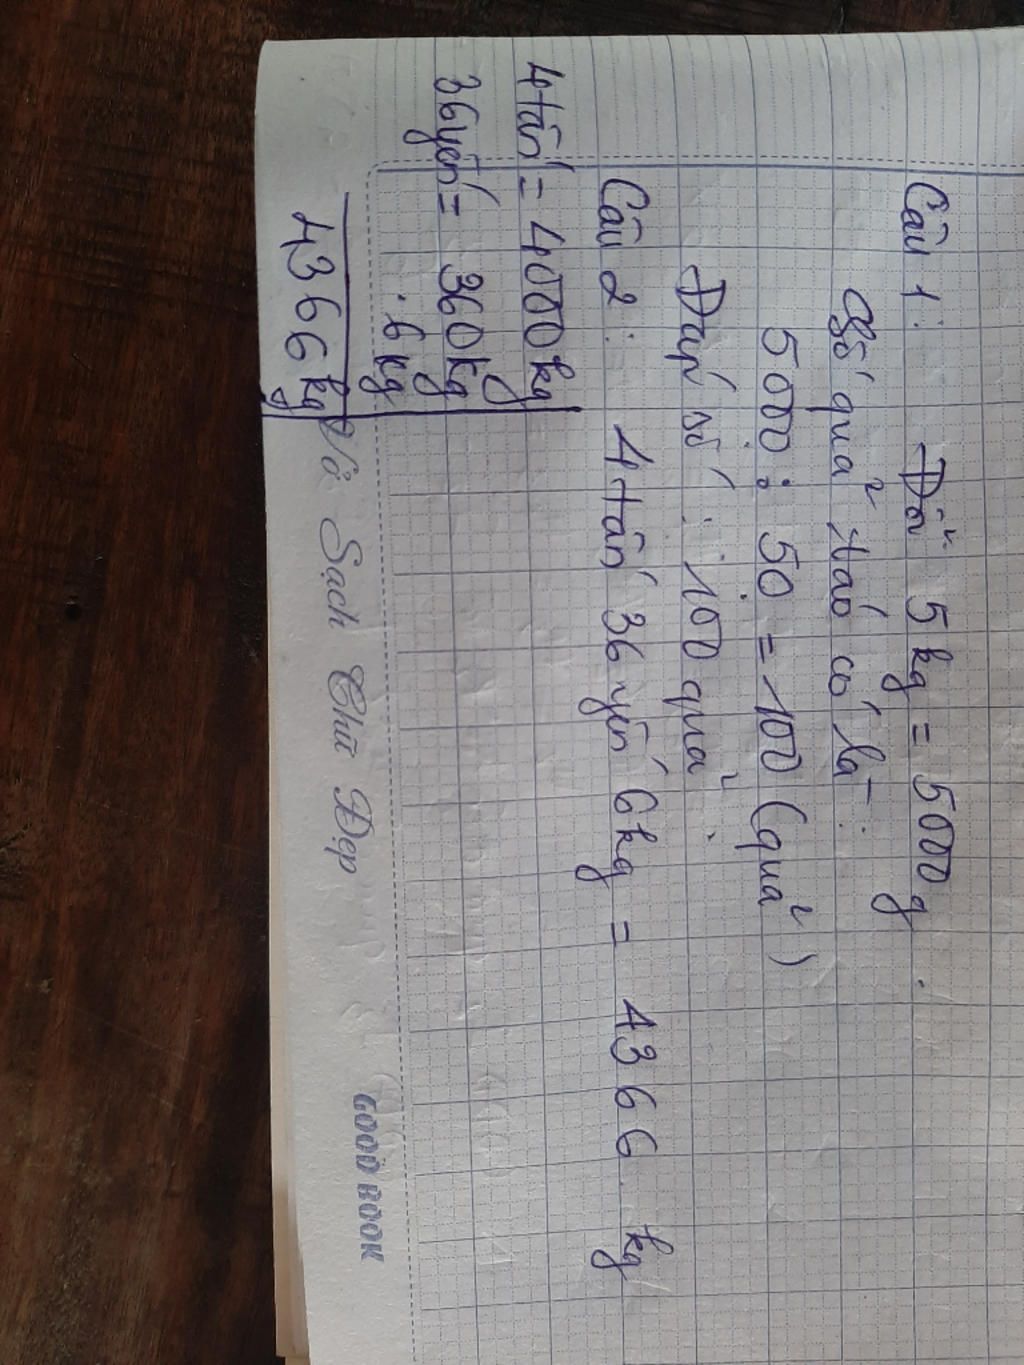 Câu 1: Đổi 5kg = 5000g.
Số quả táo có là:
5000 : 50 = 100 (quả)
Đáp số : 100 quả.
Câu 2: 4 tấn 36 yến 6kg = 4366 kg
4 tấn = 4000kg
36 yến = 360kg
6kg
4366kg
Vở Sạch Chữ Đẹp
GOOD BOOK